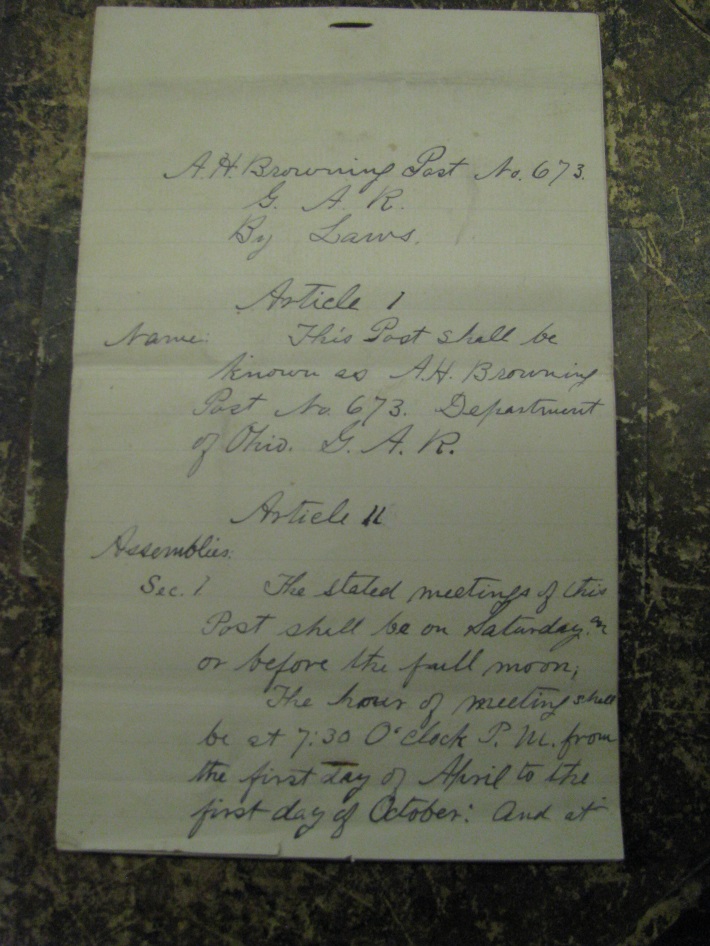 A.H. Browning Post No. 673.
G. A. R.
By Laws.
Article 1
Name: This Post shall be
known as A.H. Browning
Post No. 673. Department
of Ohio. G. A. R.
Article 11
Assemblies:
Sec. 1 The stated meetings of this
Post shall be on Saturday on
or before the full moon;
The hour of meeting shall
be at 7:30 O'clock P. M. from
the first day of April to the
first day of October: And at